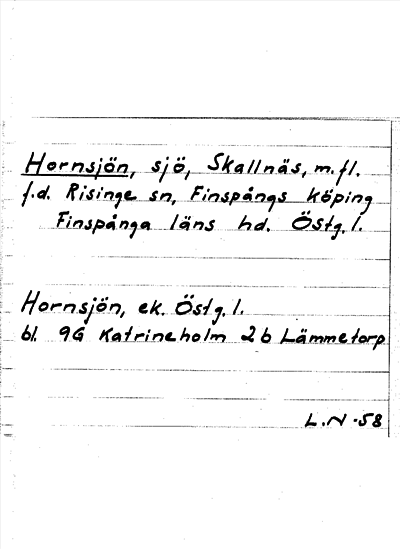 Hornsjön, sjö, Skallnäs, m.fl.
f.d. Risinge sn, Finspångs köping
Finspånga läns hd. Östg.l.
Hornsjön, ek. Östg.l.
bl. 9G Katrineholm 2b Lämmetorp
L.N -58